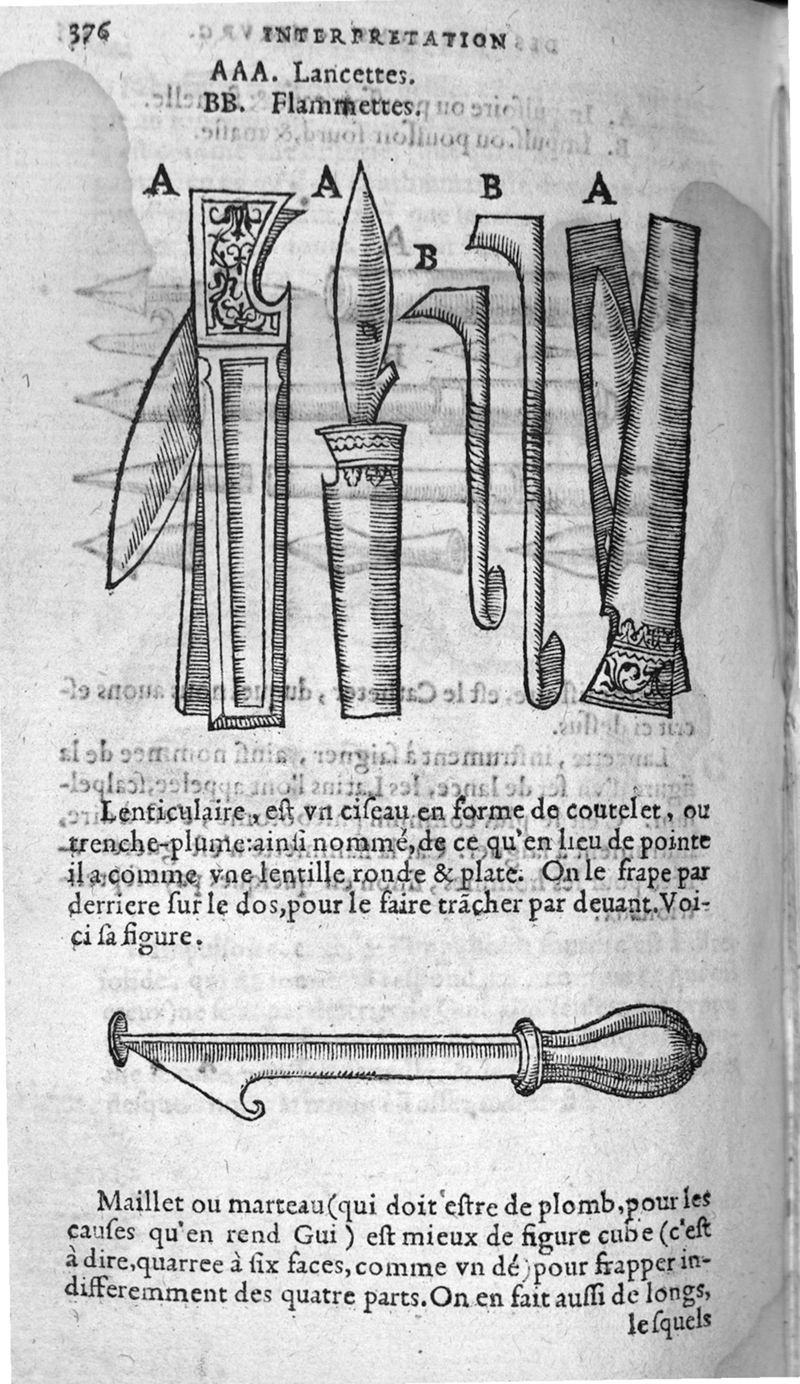 376 INTERPRETATION
AAA. Lancettes.
BB. Flammettes.
A A B A
B
Lenticulaire, eſt vn ciſeau en forme de coutelet, ou
trenche-plume:ainſi nommé,de ce qu'en lieu de pointe
il a comme vne lentille ronde & plate. On le frape par
derriere ſur le dos,pour le faire trãcher par deuant.Voi-
çi ſa figure.
Maillet ou marteau(qui doit eſtre de plomb,pour les
cauſes qu'en rend Gui) eſt mieux de figure cube (c'eſt
à dire,quarree à ſix faces,comme vn dé)pour frapper in-
differemment des quatre parts.On en fait auſſi de longs,
leſquels